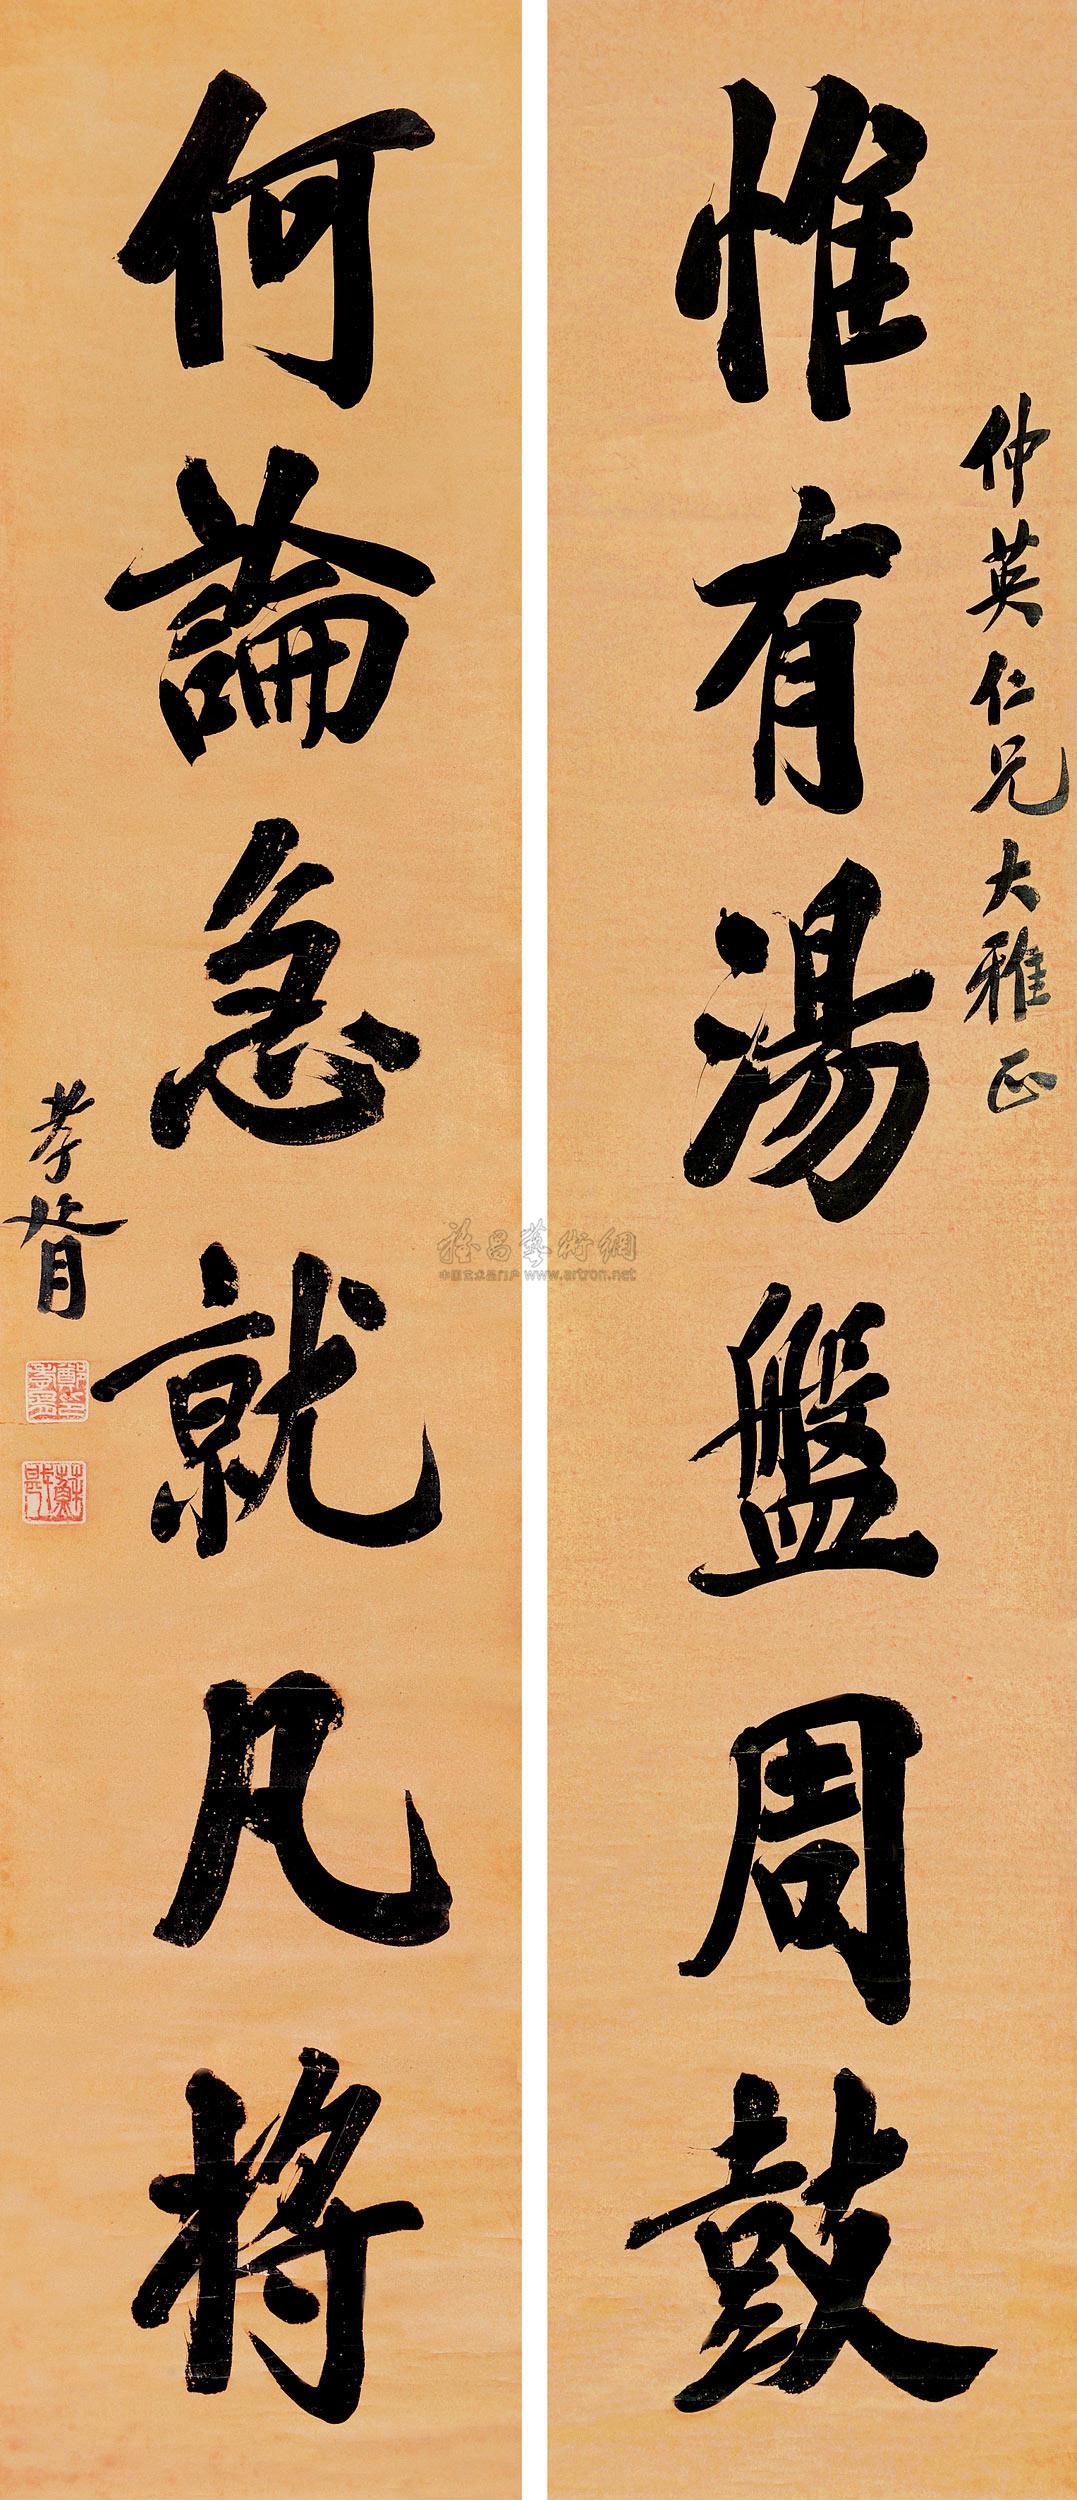 仲英仁兄大雅正
惟有湯盤周鼓
何論急就凡將
孝胥
鄭孝胥印
蘇戡
雅昌藝術網
中国艺术品门户 www.artron.net